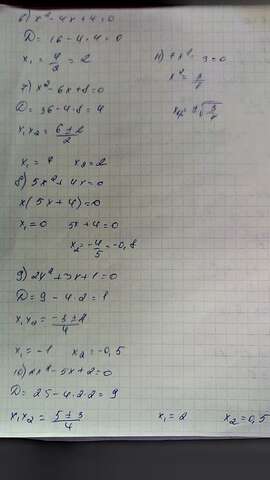 6) x² - 4x + 4 = 0
D = 16 - 4·4 = 0
x₁ = 4/2 = 2
7) x² - 6x + 8 = 0
D = 36 - 4·8 = 4
x₁x₂ = (6 ± 2)/2
x₁ = 4 x₂ = 2
8) 5x² + 4x = 0
x(5x + 4) = 0
x₁ = 0 5x + 4 = 0
x₂ = -4/5 = -0,8
9) 2x² + 3x + 1 = 0
D = 9 - 4·2 = 1
x₁x₂ = (-3 ± 1)/4
x₁ = -1 x₂ = -0,5
10) 2x² - 5x + 2 = 0
D = 25 - 4·2·2 = 9
x₁x₂ = (5 ± 3)/4 x₁ = 2 x₂ = 0,5
11) 7x² - 3 = 0
x² = 3/7